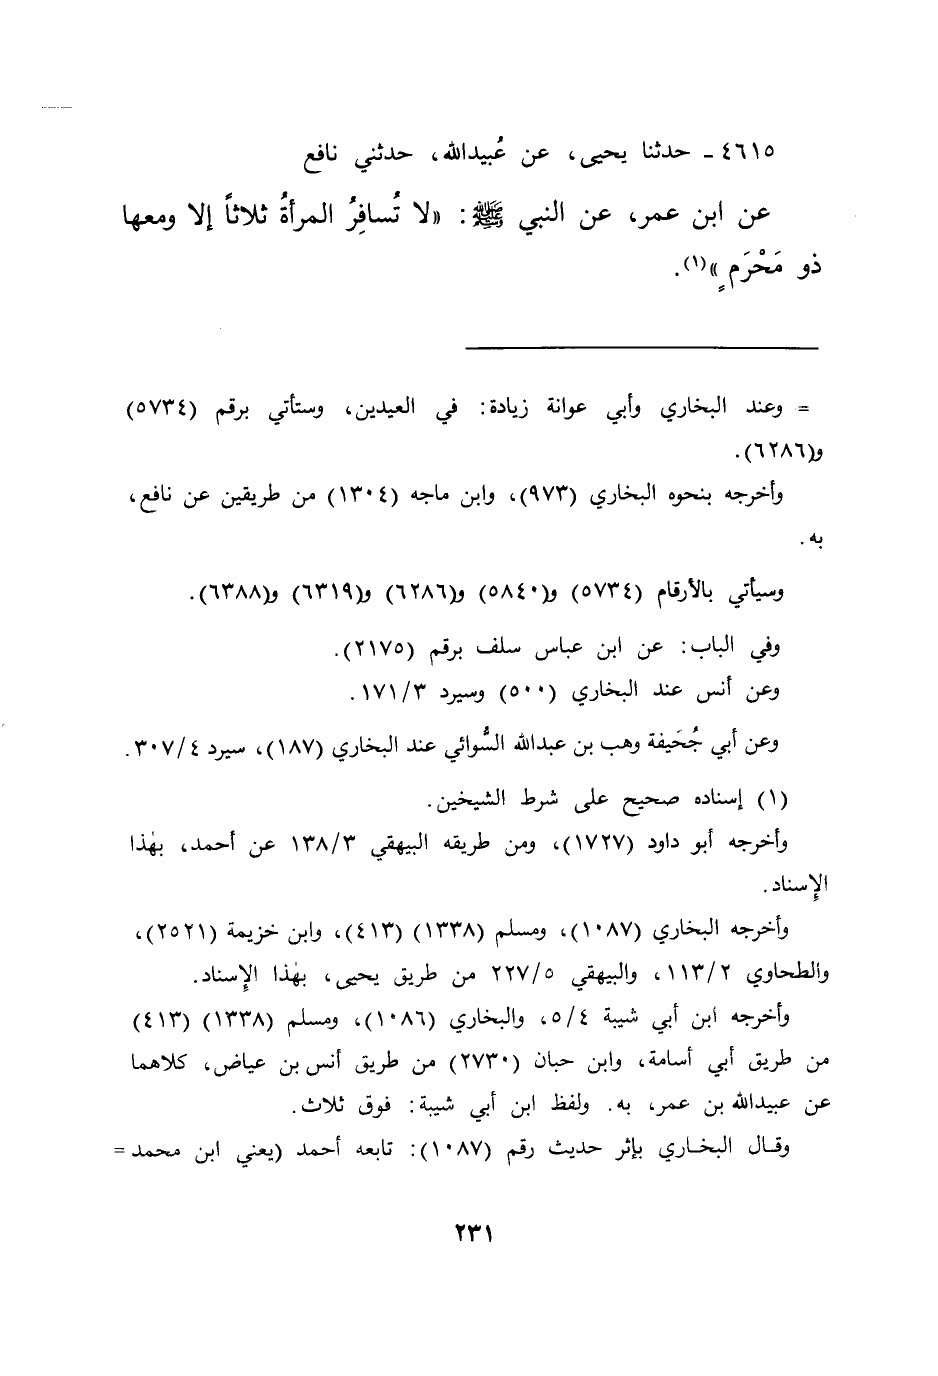 ٤٦١٥ - حدثنا يحيى، عن عُبيدالله، حدثني نافع
عن ابن عمر، عن النبي ﷺ: «لا تُسافِرُ المرأةُ ثلاثاً إلا ومعها
ذو مَحْرَمٍ»(١).
= وعند البخاري وأبي عوانة زيادة: في العيدين، وستأتي برقم (٥٧٣٤)
و(٦٢٨٦).
وأخرجه بنحوه البخاري (٩٧٣)، وابن ماجه (١٣٠٤) من طريقين عن نافع،
به.
وسيأتي بالأرقام (٥٧٣٤) و(٥٨٤٠) و(٦٢٨٦) و(٦٣١٩) و(٦٣٨٨).
وفي الباب: عن ابن عباس سلف برقم (٢١٧٥).
وعن أنس عند البخاري (٥٠٠) وسيرد ١٧١/٣.
وعن أبي جُحَيفة وهب بن عبدالله السُّوائي عند البخاري (١٨٧)، سيرد ٣٠٧/٤.
(١) إسناده صحيح على شرط الشيخين.
وأخرجه أبو داود (١٧٢٧)، ومن طريقه البيهقي ١٣٨/٣ عن أحمد، بهٰذا
الإِسناد.
وأخرجه البخاري (١٠٨٧)، ومسلم (١٣٣٨) (٤١٣)، وابن خزيمة (٢٥٢١)،
والطحاوي ١١٣/٢، والبيهقي ٢٢٧/٥ من طريق يحيى، بهٰذا الإِسناد.
وأخرجه ابن أبي شيبة ٥/٤، والبخاري (١٠٨٦)، ومسلم (١٣٣٨) (٤١٣)
من طريق أبي أسامة، وابن حبان (٢٧٣٠) من طريق أنس بن عياض، كلاهما
عن عبيدالله بن عمر، به. ولفظ ابن أبي شيبة: فوق ثلاث.
وقال البخاري بإثر حديث رقم (١٠٨٧): تابعه أحمد (يعني ابن محمد =
٢٣١